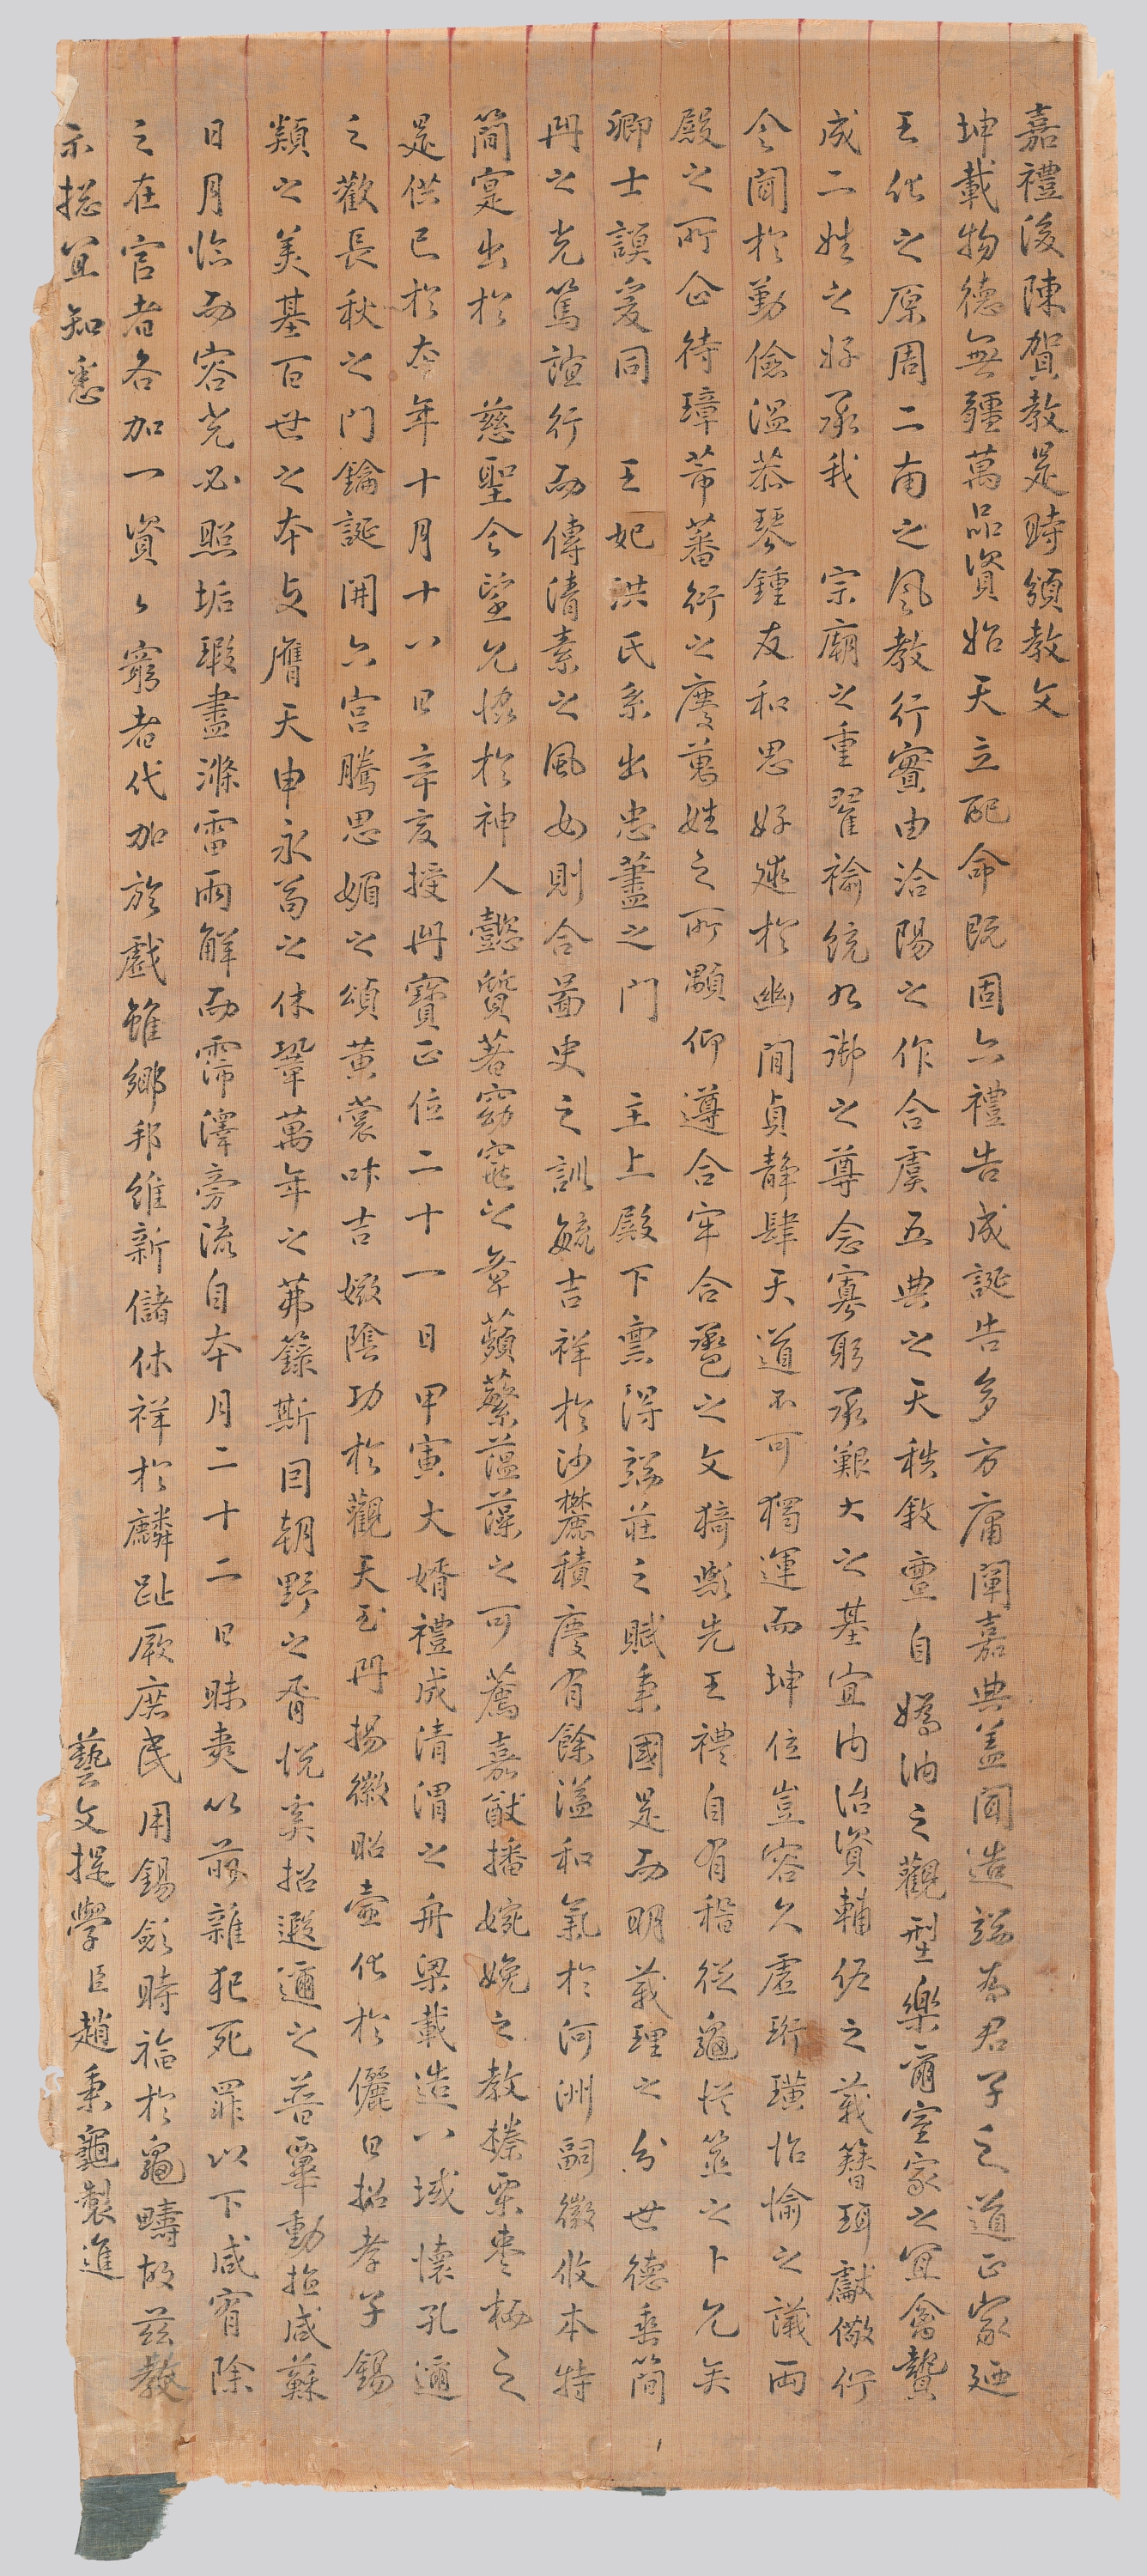 嘉禮後陳賀教是時頒教文
坤載物德無疆萬品資始天立配命旣固六禮告成誕告多方庸闡嘉典盖聞造端爲君子之道正家廼
王化之原周二南之風敎行實由洽陽之作合虞五典之天秩敘亶自嬀汭之觀型樂爾室家之宜禽贄
成二姓之好承我　宗廟之重翟褕統九御之尊念寡躬承艱大之基宜內治資輔佐之義簪珥獻儆佇
令聞於勤儉溫恭琴鍾友和思好逑於幽閒貞靜肆天道不可獨運而坤位豈容久虛珩璜怡愉之議兩
殿之所企待璋芾蕃衍之慶萬姓之所顒仰遵合牢合巹之文猗歟先王禮自有稽從龜從筮之卜允矣
卿士謨爰同　王妃洪氏系出忠藎之門　主上殿下禀得端莊之賦秉國是而明義理之分世德垂簡
冊之光篤誼行而傳淸素之風女則合圖史之訓毓吉祥於沙麓積慶有餘溢和氣於河洲嗣徽攸本特
簡寔出於　慈聖令望允協於神人懿質著窈窕之章蘋蘩薀藻之可薦嘉猷播婉娩之教榛栗棗栭之
是供已於本年十月十八日辛亥授冊寶正位二十一日甲寅大婚禮成淸渭之舟梁載造八域懷孔邇
之歡長秋之門鑰誕開六宮騰思媚之頌黃裳叶吉嫓陰功於觀天玉冊揚徽昭壼化於儷日招孝子錫
類之美基百世之本支膺天申永篤之休鞏萬年之茀籙斯囙朝野之胥悅奚招遐邇之普鞸動植咸蘇
日月臨而容光必照垢瑕盡滌雷雨觧而霈澤旁流自本月二十二日昧爽以前雜犯死罪以下咸宥除
之在官者各加一資〻窮者代加於戲雖鄉邦維新儲休祥於麟趾厥庶民用錫斂時福於龜疇故茲教
示摠宜知悉　藝文提學臣趙秉龜製進